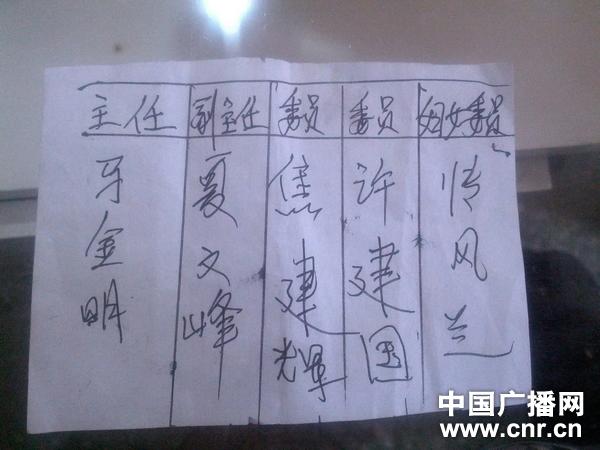 主任 副主任 委员 委员 妇女委员
牙金明
夏文峰
焦建辉
许建国
情风兰
中国广播网
www.cnr.cn